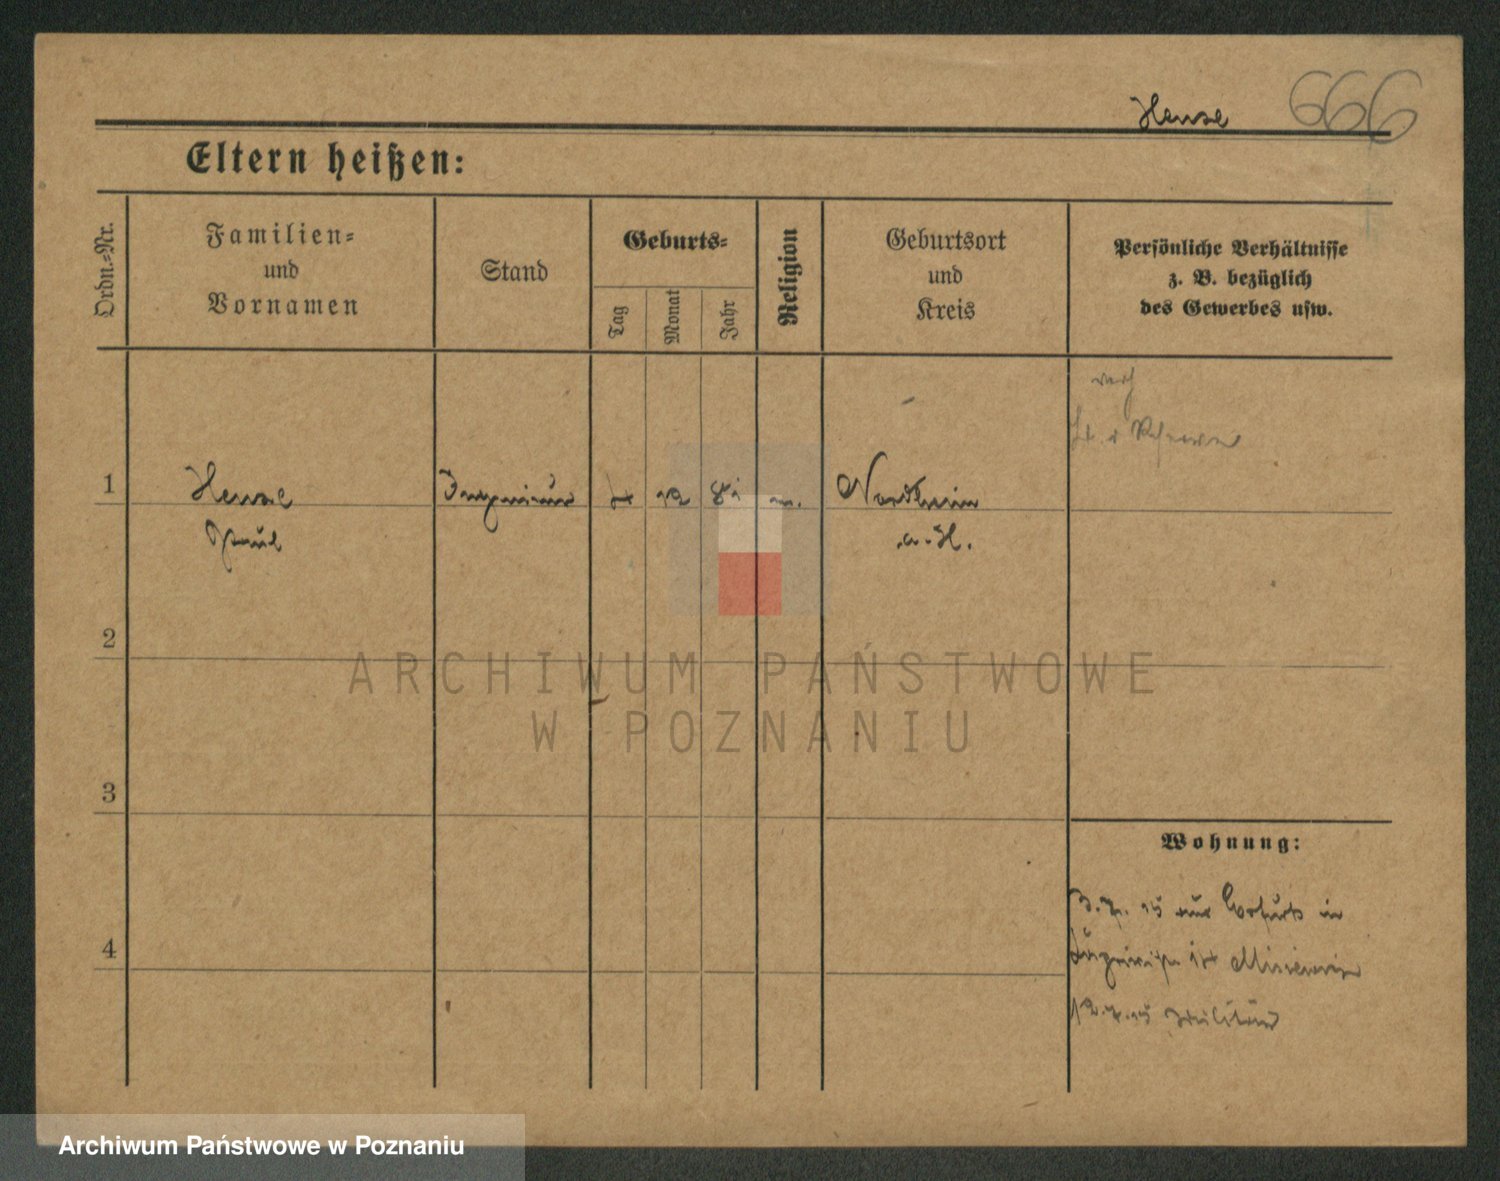 Hense 666
Eltern heißen:
Ordn.=Nr.
Familien=
und
Vornamen
Stand
Geburts=
Tag
Monat
Jahr
Religion
Geburtsort
und
Kreis
Persönliche Verhältnisse
z. B. bezüglich
des Gewerbes usw.
1
Hense
Paul
Ingenieur
12
81
Nordheim
a. H.
2
3
4
Wohnung:
3.7.15 aus Erfurt in
12.7.15 Militär
ARCHIWUM PAŃSTWOWE
W POZNANIU
Archiwum Państwowe w Poznaniu